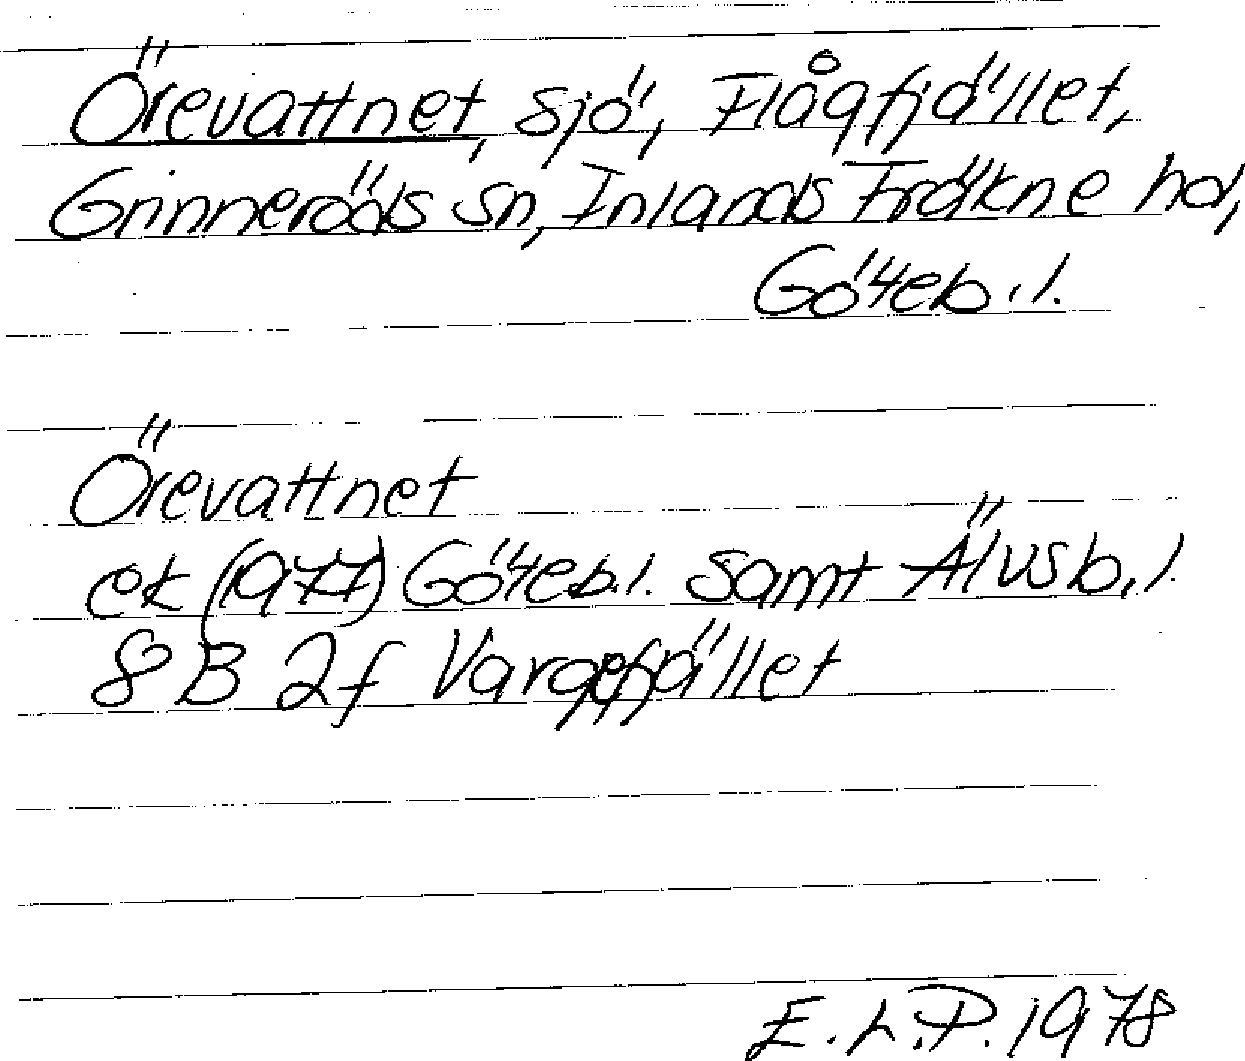 Örevattnet, sjö, Flågfjället,
Grinneröds sn, Inlands Fräkne hd,
Göteb.l.
Örevattnet
ek (1977) Göteb.l. samt Älvsb.l.
8B 2f Vargefjället
E.L.P. 1978